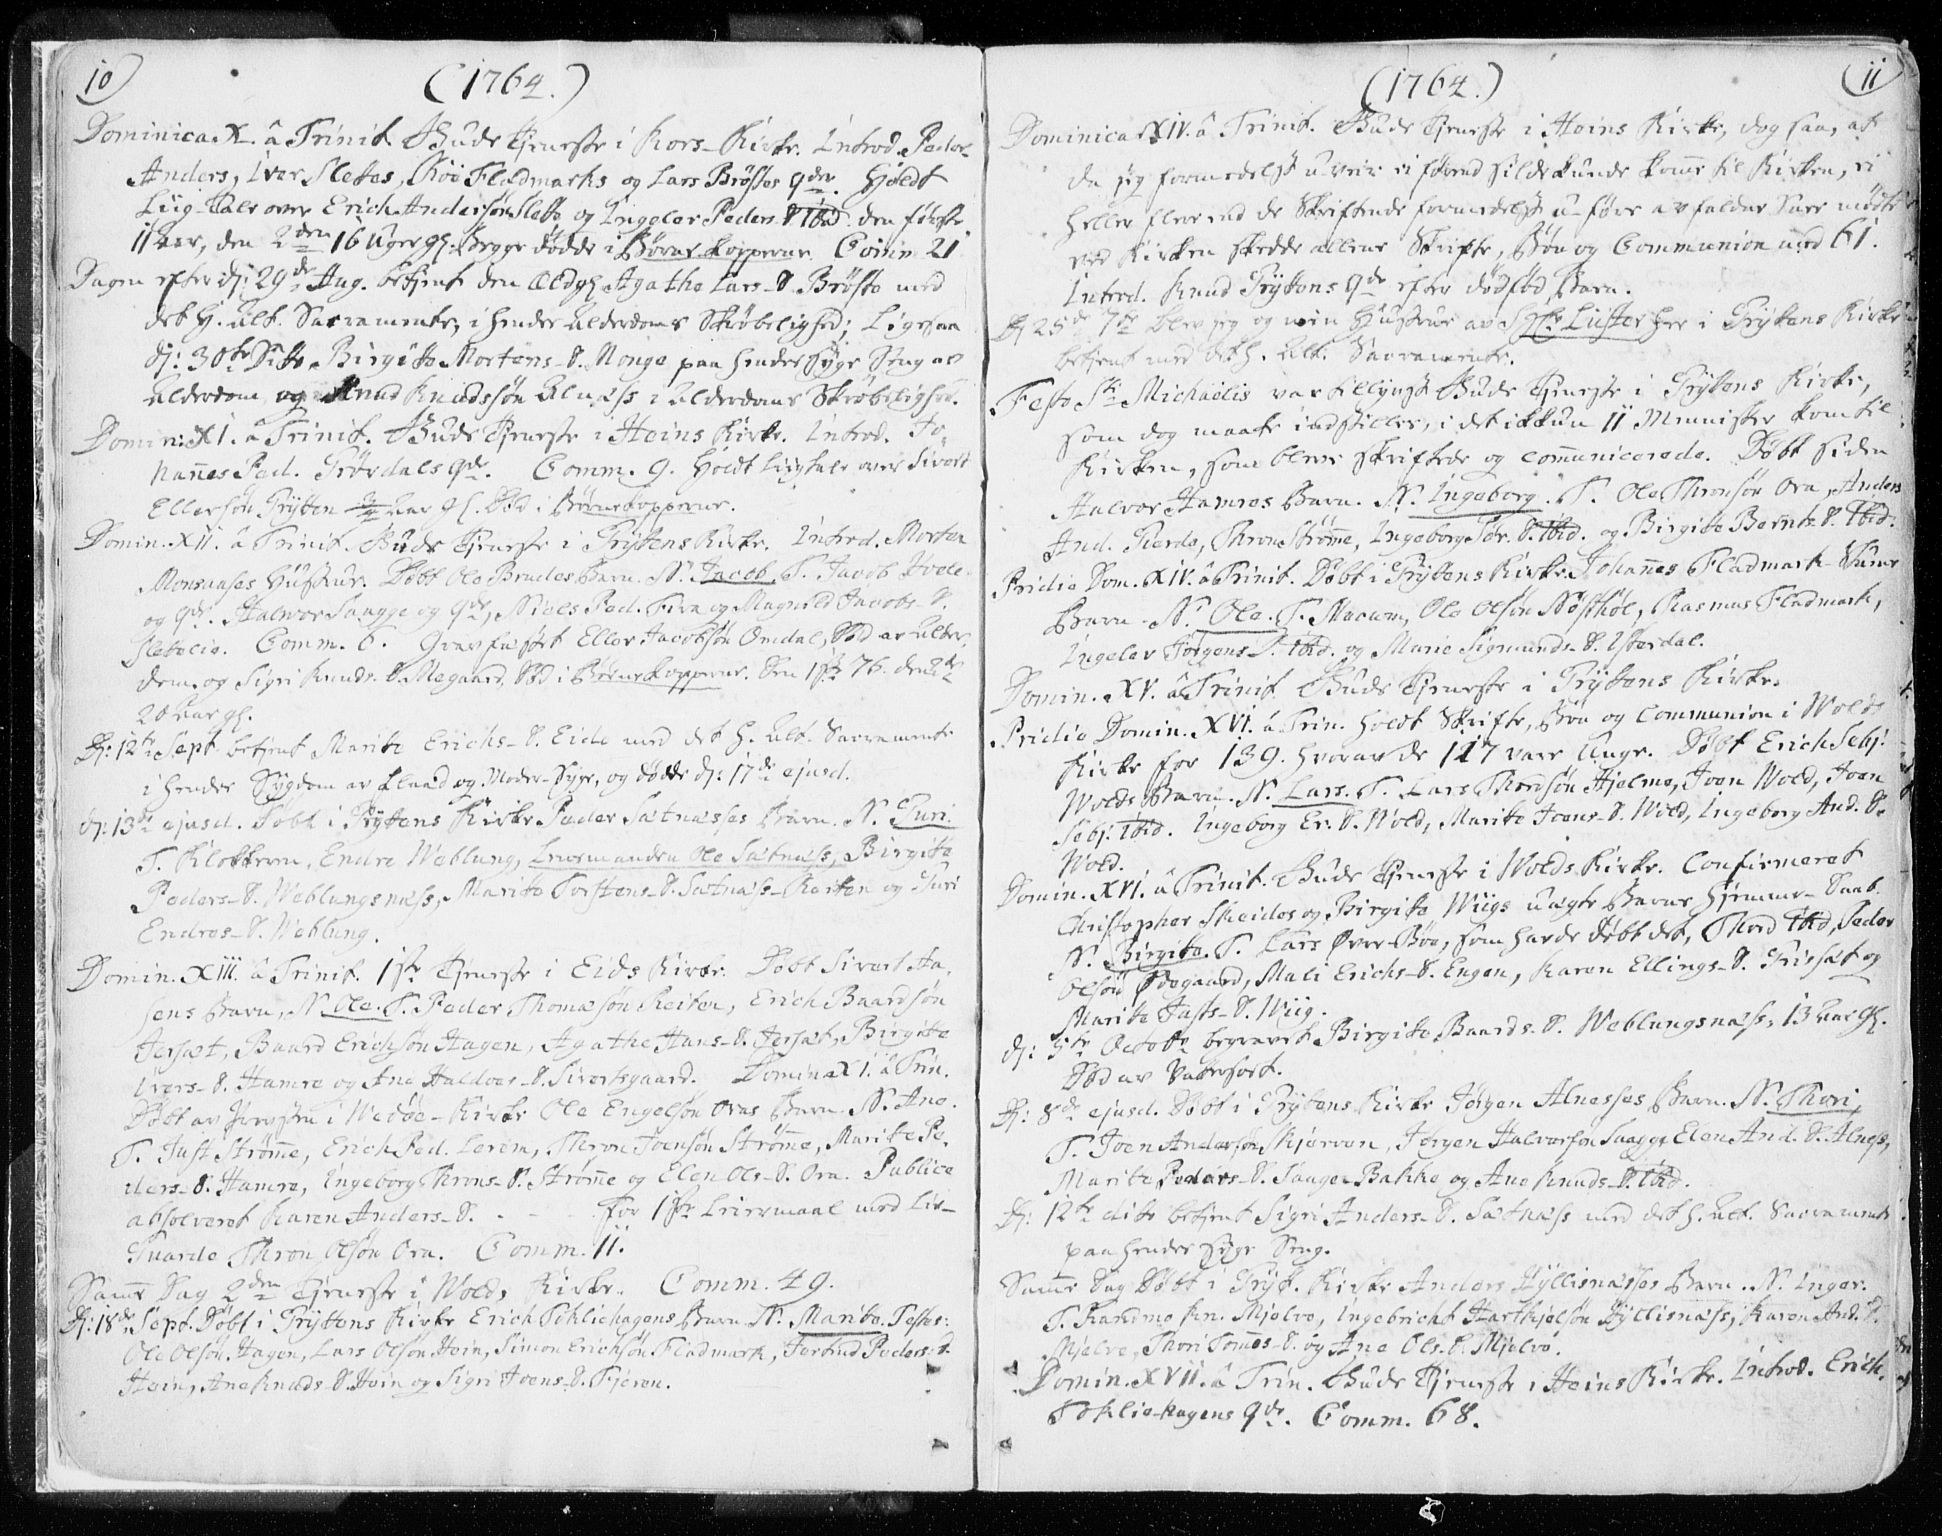 10
(1764.)
Dominica X. â Trinit. Guds Tieneste i Kors-Kirke. Introd. Peder
Anders, Iver Sletes, Roe Fladmarks og Lars Brøstes qdr. Holdt
Liig-Tale over Erich Andersøn Slette og Ingeler Peders D. ibid. den første
11 aar, den 2den 16 Uger gl. begge døde i Børne kopperne. Coïm. 21
Dagen efter d: 29de Aug. betient den Ædgl. Agathe Lars-D. Brøste med
det H. Alt. Sacramente, i hendes Alderdoms Skrøbelighed; Ligesaa
d: 30te dito Birgite Mortens-D. Monge paa hendes Syge Seng af
Alderdom og Knud Knudssøn Alnæss i Alderdoms Skrøbelighed.
Domin: XI. â Trinit. Guds Tieneste i Heins Kirke. Introd. Jo-
hannes Ped. Frørdals qdr. Comm. 9. Holdt Liigtale over Sivert
Ellersøn Grytten 3/4 aar gl. Død i Børnekopperne.
Domin. XII. â Trinit. Guds Tieneste i Gryttens Kirke. Introd. Morten
Monsaases Hustrue. Døbt Ole Brudes Barn. N. Jacob. T. Jacob
og qde. Halvor Saugge og qde, Niels Ped. og Magnild Jacobs-D.
Slettelie. Comm. 6. Gravfæstet Eller Jacobsøn Omdal, Død af Alder
dom, og Sigri Knuds-D. Megaard, Død i Børnekopperne. Den 1ste 76. den 2de
20 aar gl.
D: 12te Sept. betient Marite Erichs-D. Eide med det H. Alt. Sacramente
i hendes Sygdom af og Moder-Syge, og døde d: 17de ejusd.
d: 13de ejusd. Døbt i Gryttens Kirke Peder Sætnæsses Barn. N. Guri.
T. Klokkeren, Endre Weblung, Lensmanden Ole Sætnæss, Birgite
Peders-D. Weblungsnæss, Marite Torstens-D. Sætnæss-Reiten og Guri
Endres-D. Weblung.
Domin. XIII. â Trinit. 1ste Tieneste i Eids Kirke. Døbt Sivert Aa-
sens Barn, N. Ole. T. Peder Thomæsøn Reiten, Erich Baardsøn
Jersæt, Baard Erichsøn Hagen, Agathe Hans-D. Jersæt, Birgite
Ivers-D. Hamre og Ane Haldoes-D. Sivertsgaard. Domin XI. â Trin.
Døbt af Provsten i Wedøe-Kirke Ole Engelsøn Oraes Barn. N. Ane.
T. Just Strømme, Erich Ped. Lerem, Thron Joensøn Strømme, Marite Pe-
ders-D. Hamre, Ingeborg Throns-D. Strømme og Elen Ols-D. Ora. Publice
absolveret Karen Anders-D. - - - For 1ste Leiermaal med Lie-
Guarde Thron Olsøn Ora. Comm. 11.
Samme Dag 2den Tieneste i Wolds Kirke. Comm. 49.
D: 18de Sept. Døbt i Gryttens Kirke Erich Toklichagens Barn. N. Marite. Testes:
Ole Olsøn Hagen, Lars Olsøn Hein, Simon Erichsøn Fladmark, Jertrud Peders-D.
Hein, Ane Knuds-D. Hein og Sigri Joens-D. Fjeren.
11
(1764.)
Dominica XIV. â Trinit. Guds Tieneste i Heins Kirke, dog saa, at
da jeg formedelst uveir ei førend silde kunde komme til Kirken, ei
heller flere end de Skriftende formedelst u-føre av falden Snee mødte
ved Kirken skedde allene Skrifte, Bøn og Communion med 61.
Introd. Knud Gryttens qde efter dødfød Barn.
D: 25de 7br blev jeg og min Hustrue av Hr. Lüster her i Gryttens Kirke
betient med det H. Alt. Sacramente.
Festo St. Michaëlis var tillyst Guds Tieneste i Gryttens Kirke,
som dog maatte indstilles, i det ikkun 11 Mennisker kom til
Kirken, som bleve skriftede og communicerede. Døbt siden
Halvor Hamres Barn. N. Ingeborg. T. Ole Thronsøn Ora, Anders
And. Gierde, Thron Strømme, Ingeborg Tør. D. ibid. og Birgite Bernts-D. ibid.
Pridie Dom. XIV. â Trinit. Døbt i Gryttens Kirke Johannes Fladmark-
Barn. N. Ole. T. Ole Olsøn Nøsthol, Rasmus Fladmark,
Ingeler Jørgens-D. ibid. og Marie Sigmunds-D. Isterdal.
Domin. XV. â Trinit. Guds Tieneste i Gryttens Kirke.
Pridie Domin. XVI. â Trin. Holdt Skrifte, Bøn og Communion i Wolds
Kirke for 139. hvoraf de 117 vare Unge. Døbt Erich Sebj.
Wolds Barn. N. Lars. T. Lars Thordsøn Hjelme, Joen Wold, Joen
Sebj. ibid. Ingeborg Er. D. Wold, Marite Joens-D. Wold, Ingeborg And. D.
Wold.
Domin. XVI. â Trinit. Guds Tieneste i Wolds Kirke. Confirmeret
Christopher Skeides og Birgite Wiigs uægte Barns Hjemme-Daab.
N. Birgite. T. Lars Øvre-Bøe, som havde døbt det, Thord ibid, Peder
Olsøn Ødegaard, Mali Erichs-D. Engen, Karen Ellings-D. Griset og
Marite Justs-D. Wiig.
d: 5te Octobr begravet Birgite Baards-D. Weblungsnæss, 13 aar gl.
Død av Vattersot.
D: 8de ejusd. Døbt i Gryttens Kirke Jørgen Alnesses Barn. N. Thori,
T. Joen Andersøn Skjerven, Jørgen Halvorsøn Saugge, Elen And. D. Alnes,
Marite Peders-D. Sauge-Bakke og Ane Knuds-D. ibid.
D: 12te dito betient Sigri Anders-D. Sætnæss med det H. Alt. Sacramente
paa hendes Syge Seng.
Samme Dag Døbt i Gryt. Kirke Anders Hyllisnæsses Barn. N. Inger.
T. Randmo Kn. Mjelve, Ingebricht Hartkjelsøn Hyllisnæss, Karen And. D.
Mjelve, Thori Tommes-D. og Ane Ols-D. Mjelve.
Domin. XVII. â Trin. Guds Tieneste i Heins Kirke. Introd. Erich.
Toklie-hagens qde. Comm. 68.